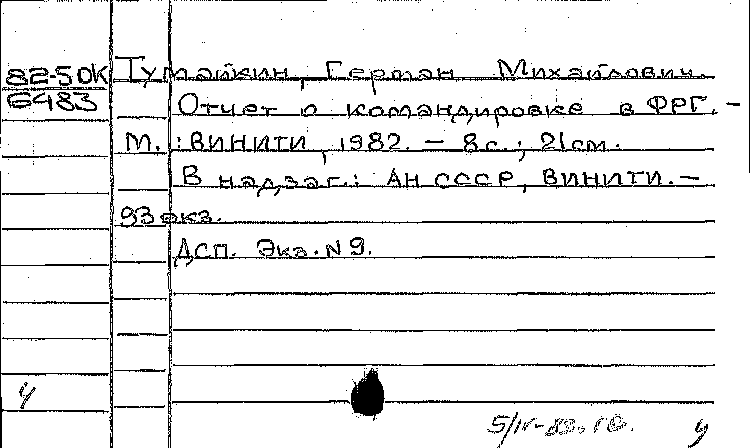 82-5 ОК Тумайкин, Герман Михайлович.
6483 Отчет о командировке в ФРГ. –
М. : ВИНИТИ, 1982. – 8 с. ; 21 см.
В надзаг.: АН СССР, ВИНИТИ. –
93 экз.
ДСП. Экз. N 9.
5/IV-83.